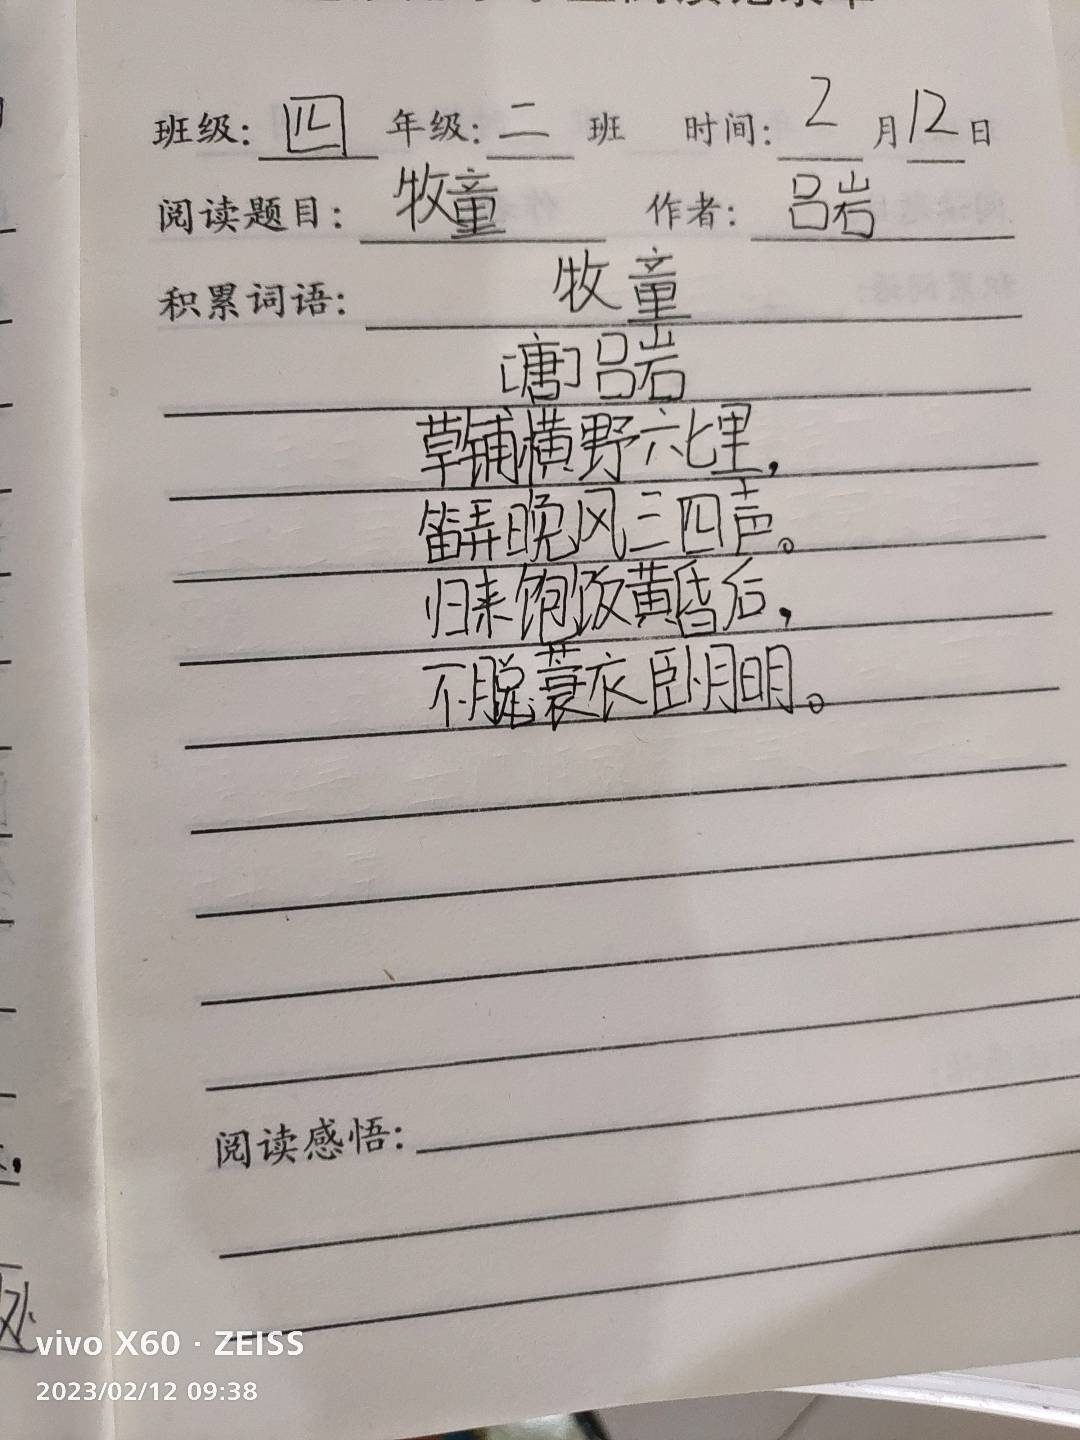 班级: 四 年级: 二 班 时间: 2 月 12 日
阅读题目: 牧童 作者: 吕岩
积累词语: 牧童
[唐] 吕岩
草铺横野六七里,
笛弄晚风三四声。
归来饱饭黄昏后,
不脱蓑衣卧月明。
阅读感悟:
vivo X60 · ZEISS
2023/02/12 09:38